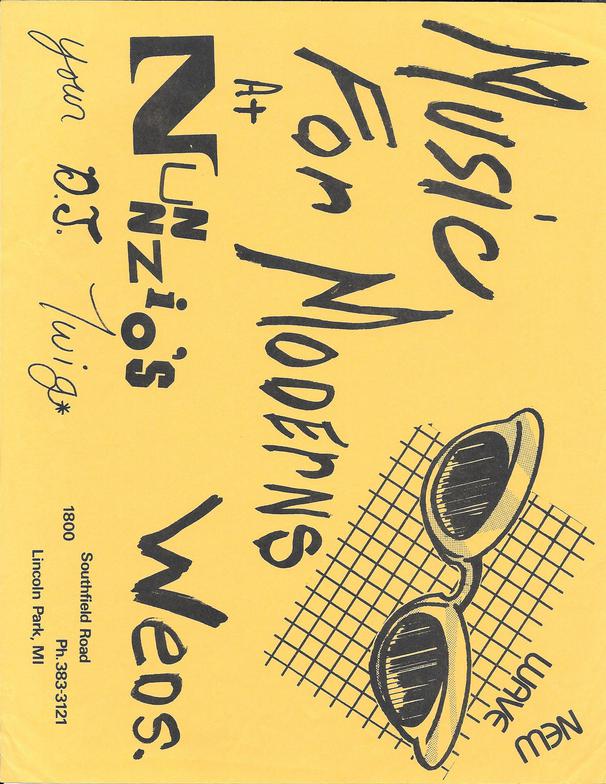 Music
For Moderns
At
Nunnzio's
Weds.
your D.J. Twig*
NEW
WAVE
1800 Southfield Road Ph.383-3121
Lincoln Park, MI